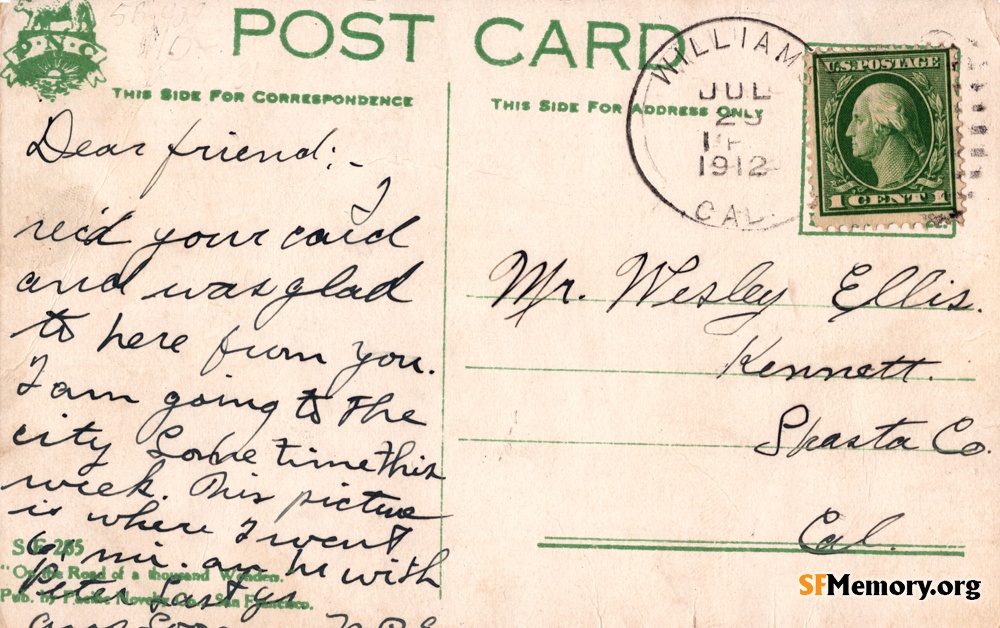 POST CARD
P.N.C.
THIS SIDE FOR CORRESPONDENCE
THIS SIDE FOR ADDRESS ONLY
WILLIAMS
JUL
1912
CAL.
U.S. POSTAGE
1 CENT 1
Dear friend:-
I
rec'd your card
and was glad
to here from you.
I am going to the
city Some time this
week. This picture
is where I went
mi. an hr with
Peter Last
Mr. Wesley Ellis.
Kennett.
Shasta Co.
Cal.
"On the Road of a thousand Wonders."
Pub. by Pacific Novelty Co., San Francisco.
SFMemory.org